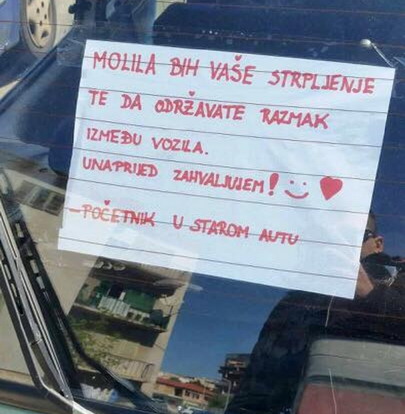 MOLILA BIH VAŠE STRPLJENJE
TE DA ODRŽAVATE RAZMAK
IZMEĐU VOZILA.
UNAPRIJED ZAHVALJUJEM! :) ♥
-POČETNIK U STAROM AUTU